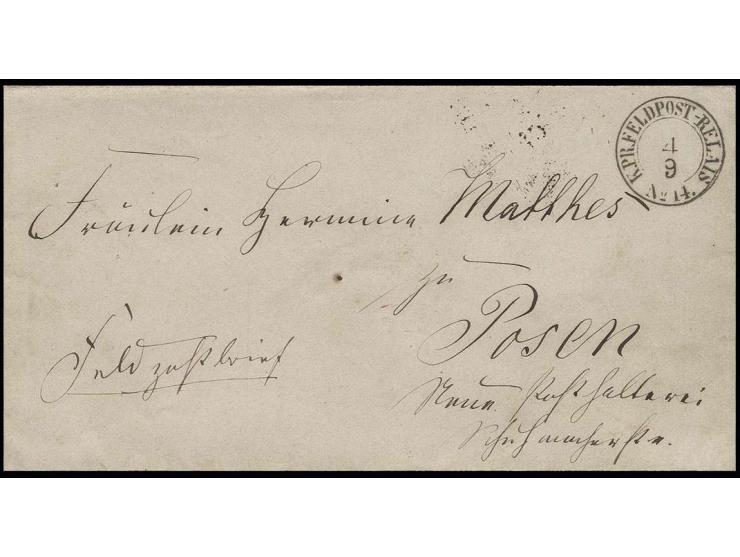 K.PR.FELDPOST-RELAIS
4
9
No 14.
Fräulein Hermine Matthes
zu
Posen
Feldpostbrief
Neue Posthalterei
Schuhmacherstr.